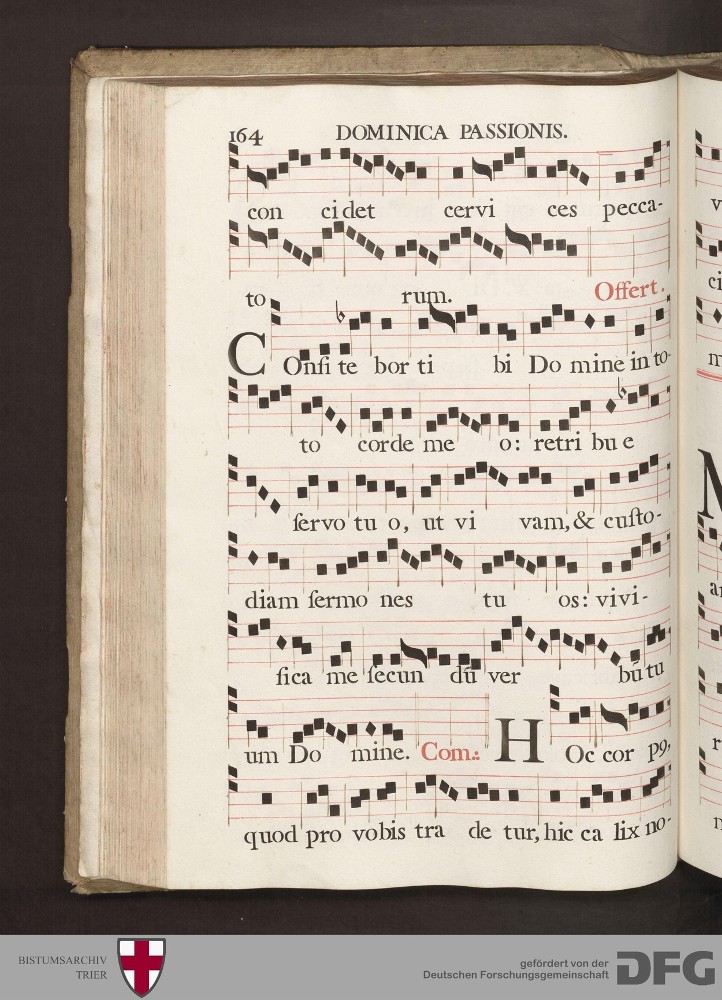 164 DOMINICA PASSIONIS.
con cidet cervi ces pecca-
to rum. Offert.
COnfi te bor ti bi Do mine in to-
to corde me o: retri bu e
servo tu o, ut vi vam, & custo-
diam sermo nes tu os: vivi-
fica me secun dū ver bū tu
um Do mine. Com.: HOc cor p9,
quod pro vobis tra de tur, hic ca lix no-
v
ci
m
M
ar
r
BISTUMSARCHIV
TRIER
gefördert von der
Deutschen Forschungsgemeinschaft
DFG